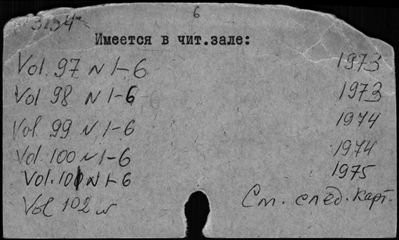 6
П3134
Имеется в чит.зале:
Vol. 97 N 1-6 1973
Vol 98 N 1-6 1973
Vol 99 N 1-6 1974
Vol. 100 N 1-6 1974
Vol. 101 N 1-6 1975
Vol 102 N См. след. карт.